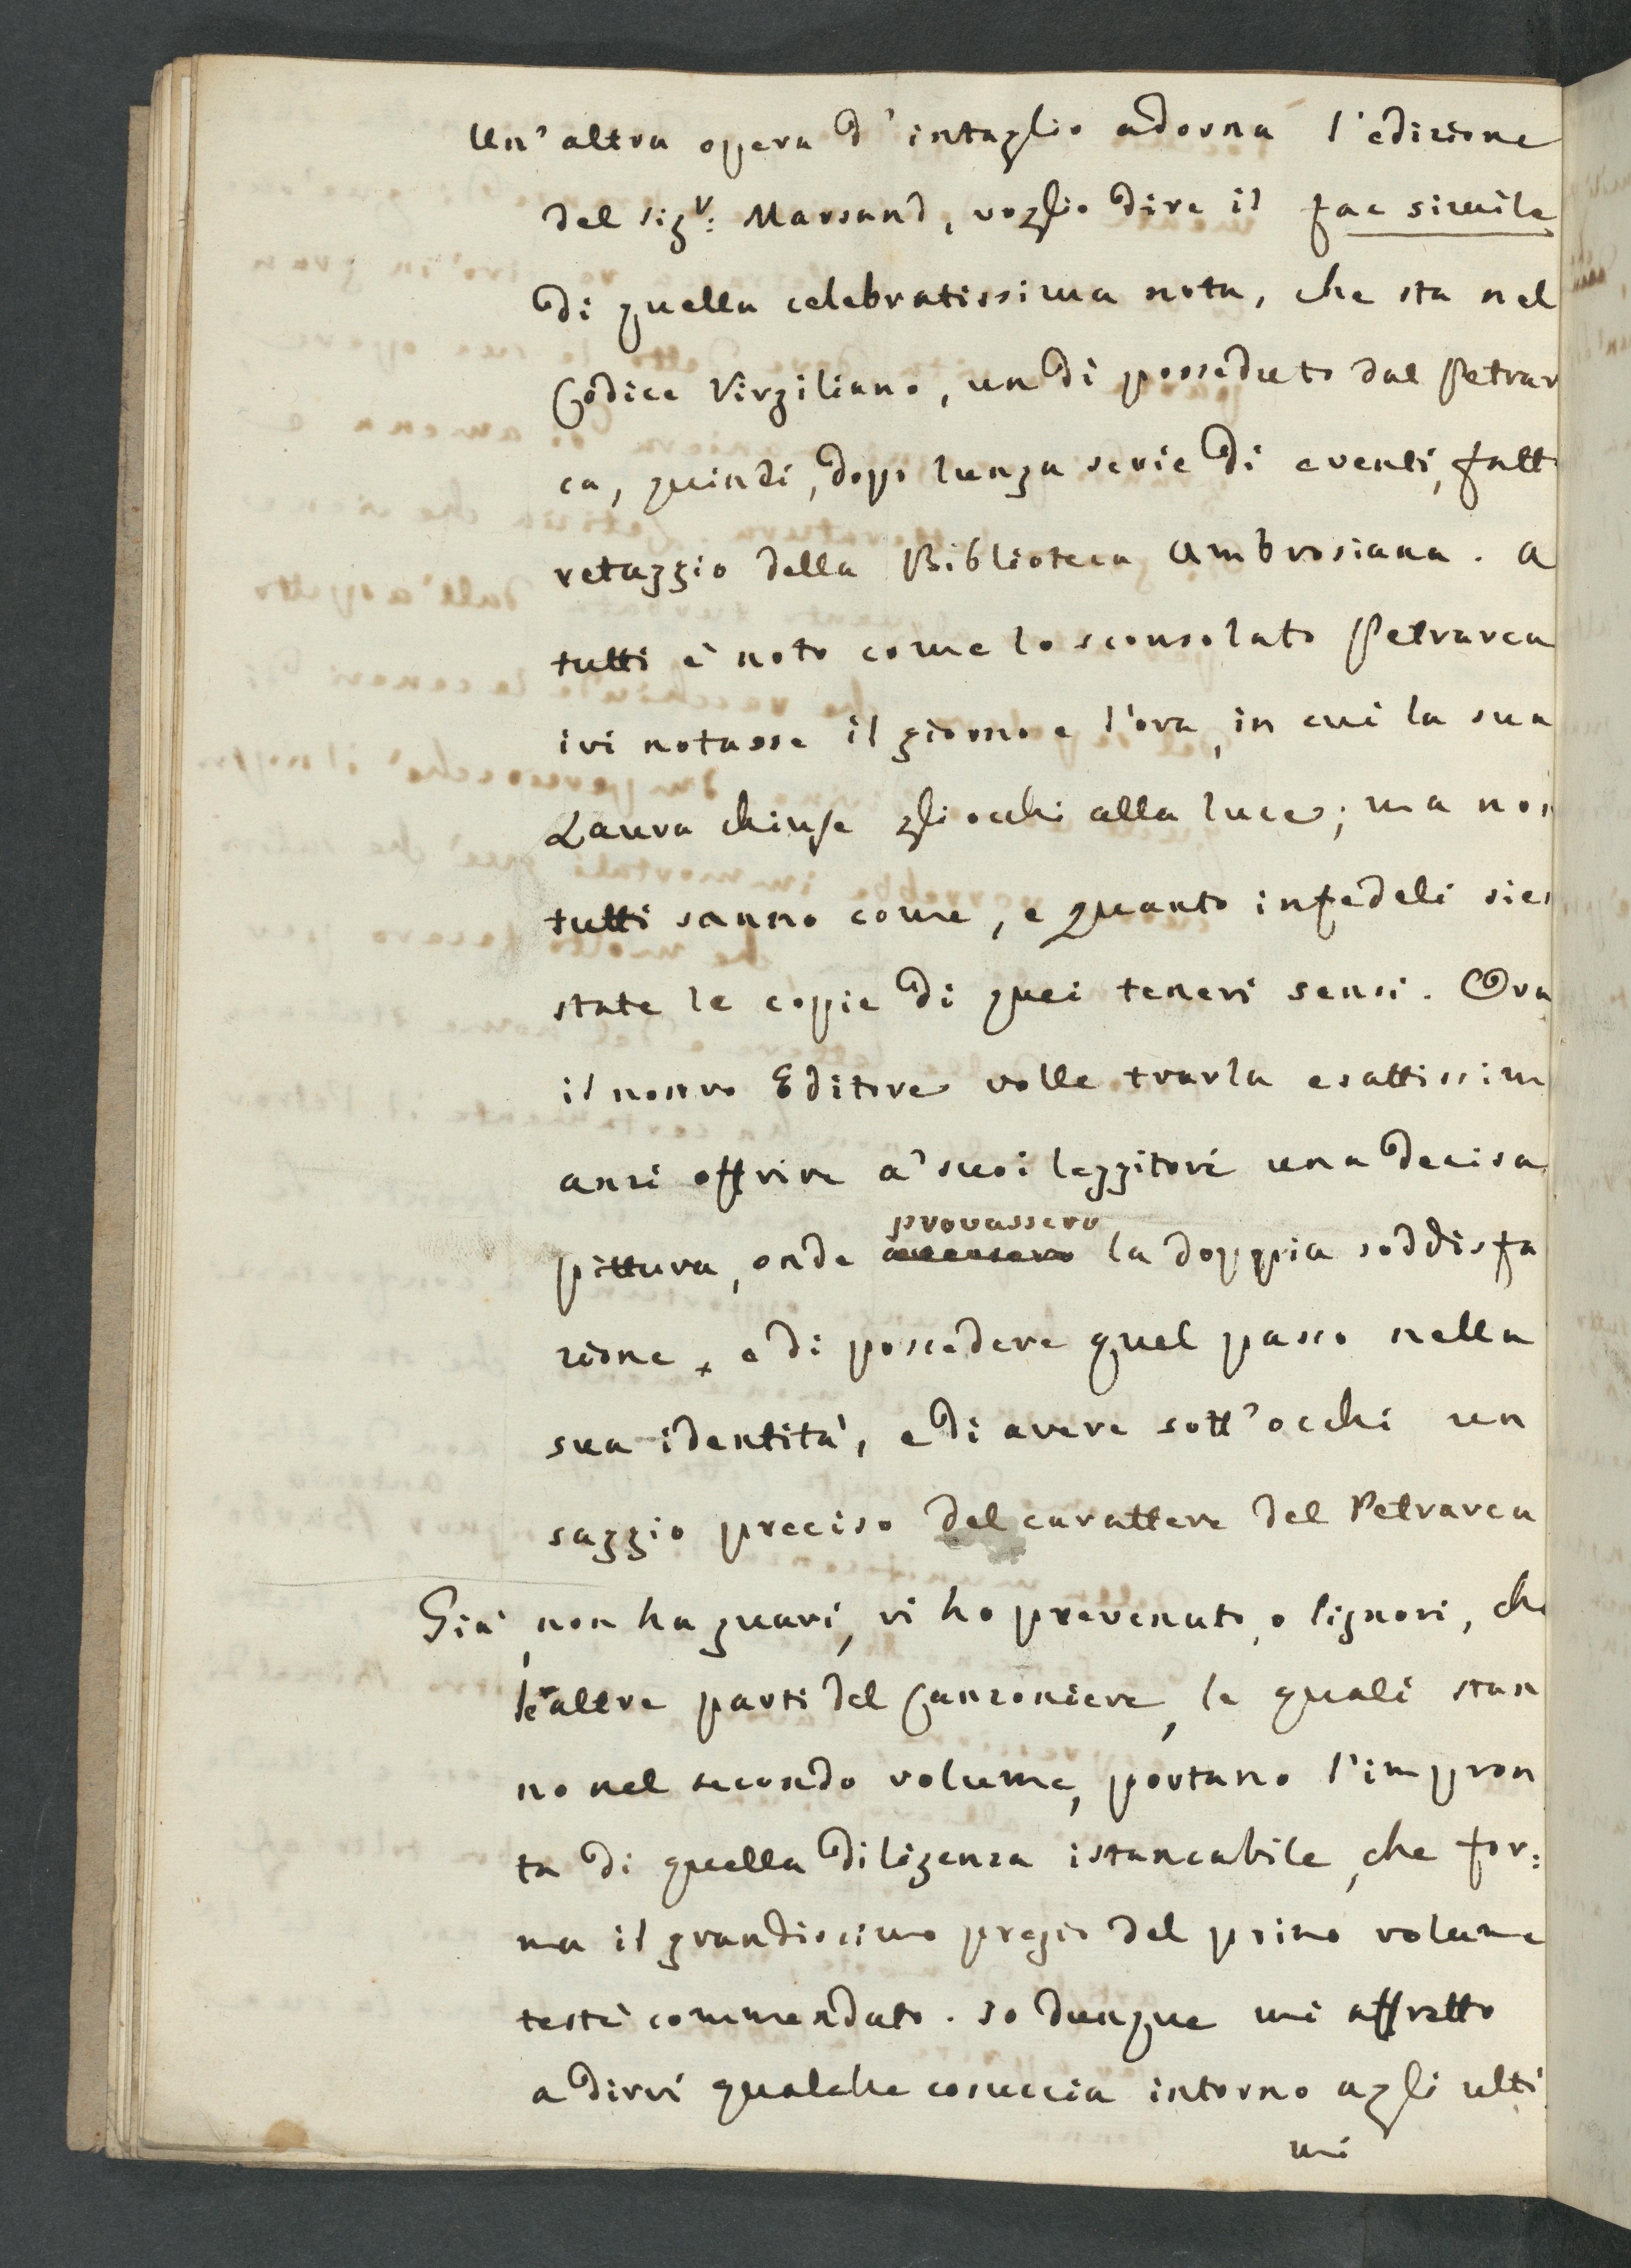 Un'altra opera d'intaglio adorna l'edizione
del sigr: Marsand, voglio dire il fac simile
di quella celebratissima nota, che sta nel
Codice Virgiliano, un dì posseduto dal Petrar
ca, quindi, dopo lunga serie di eventi, fatto
retaggio della Biblioteca Ambrosiana. A
tutti è noto come lo sconsolato Petrarca
ivi notasse il giorno e l'ora, in cui la sua
Laura chiuse gli occhi alla luce; ma non
tutti sanno come, e quanto infedeli sien
state le copie di quei teneri sensi. Ora
il nostro Editore volle trarla esattissim
anzi offrire a' suoi leggitori una decisa
provassero
pittura, onde la doppia soddisfa
zione, e di possedere quel passo nella
sua identità, e di avere sott'occhi un
saggio preciso del carattere del Petrarca
Già, non ha guari, vi ho prevenuto, o Signori, che
le altre parti del Canzoniere, le quali stan
no nel secondo volume, portano l'impron
ta di quella diligenza istancabile, che for:
ma il grandissimo pregio del primo volume
testè commendato. Io dunque mi affretto
a dirvi qualche cosuccia intorno agli ulti
mi